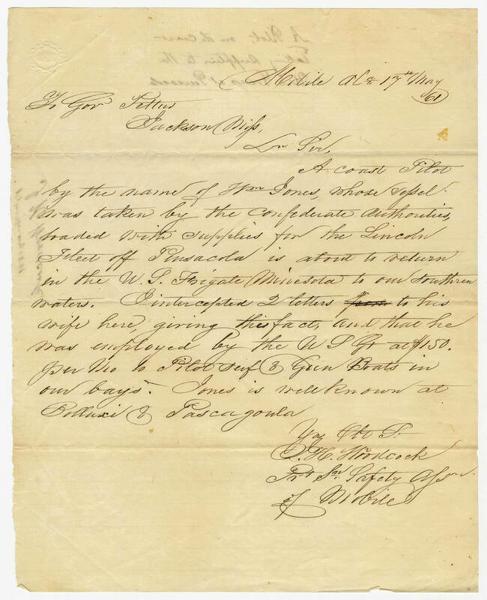 Mobile Ala 17th May
/61
To Gov Pettus
Jackson Miss,
Dr Sir,
A coast Pilot
by the name of Wm Jones, whose vessel
was taken by the Confederate Authorities,
loaded with supplies for the Lincoln
Fleet off Pensacola is about to return
in the U. S. Frigate Minesota to our southren
waters. I intercepted 2 letters from to his
wife here, giving this fact, and that he
was employed by the U S Gt at $150.
per Mo to Pilot & Gun Boats in
our bays. Jones is well known at
Pascagoula
Woodcock
Safety
of Mobile